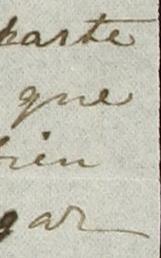 parte
que
bien
gar